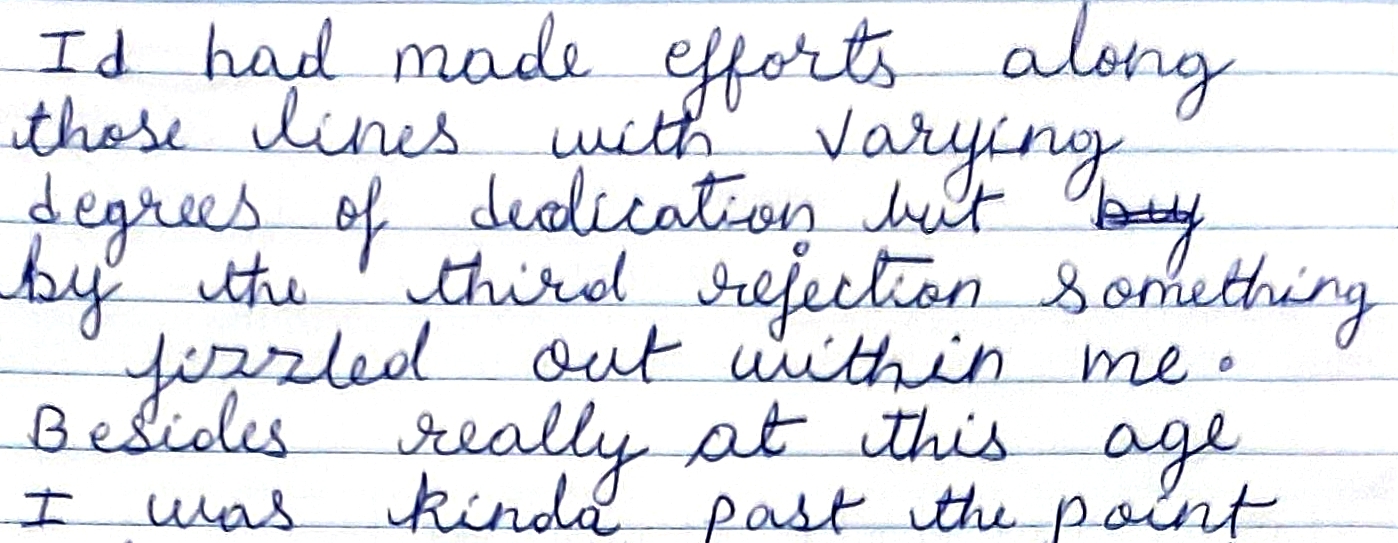 Id had made efforts along
those lines with varying
degrees of dedication but buy
by the third rejection something
fizzled out within me.
Besides really at this age
I was kinda past the point